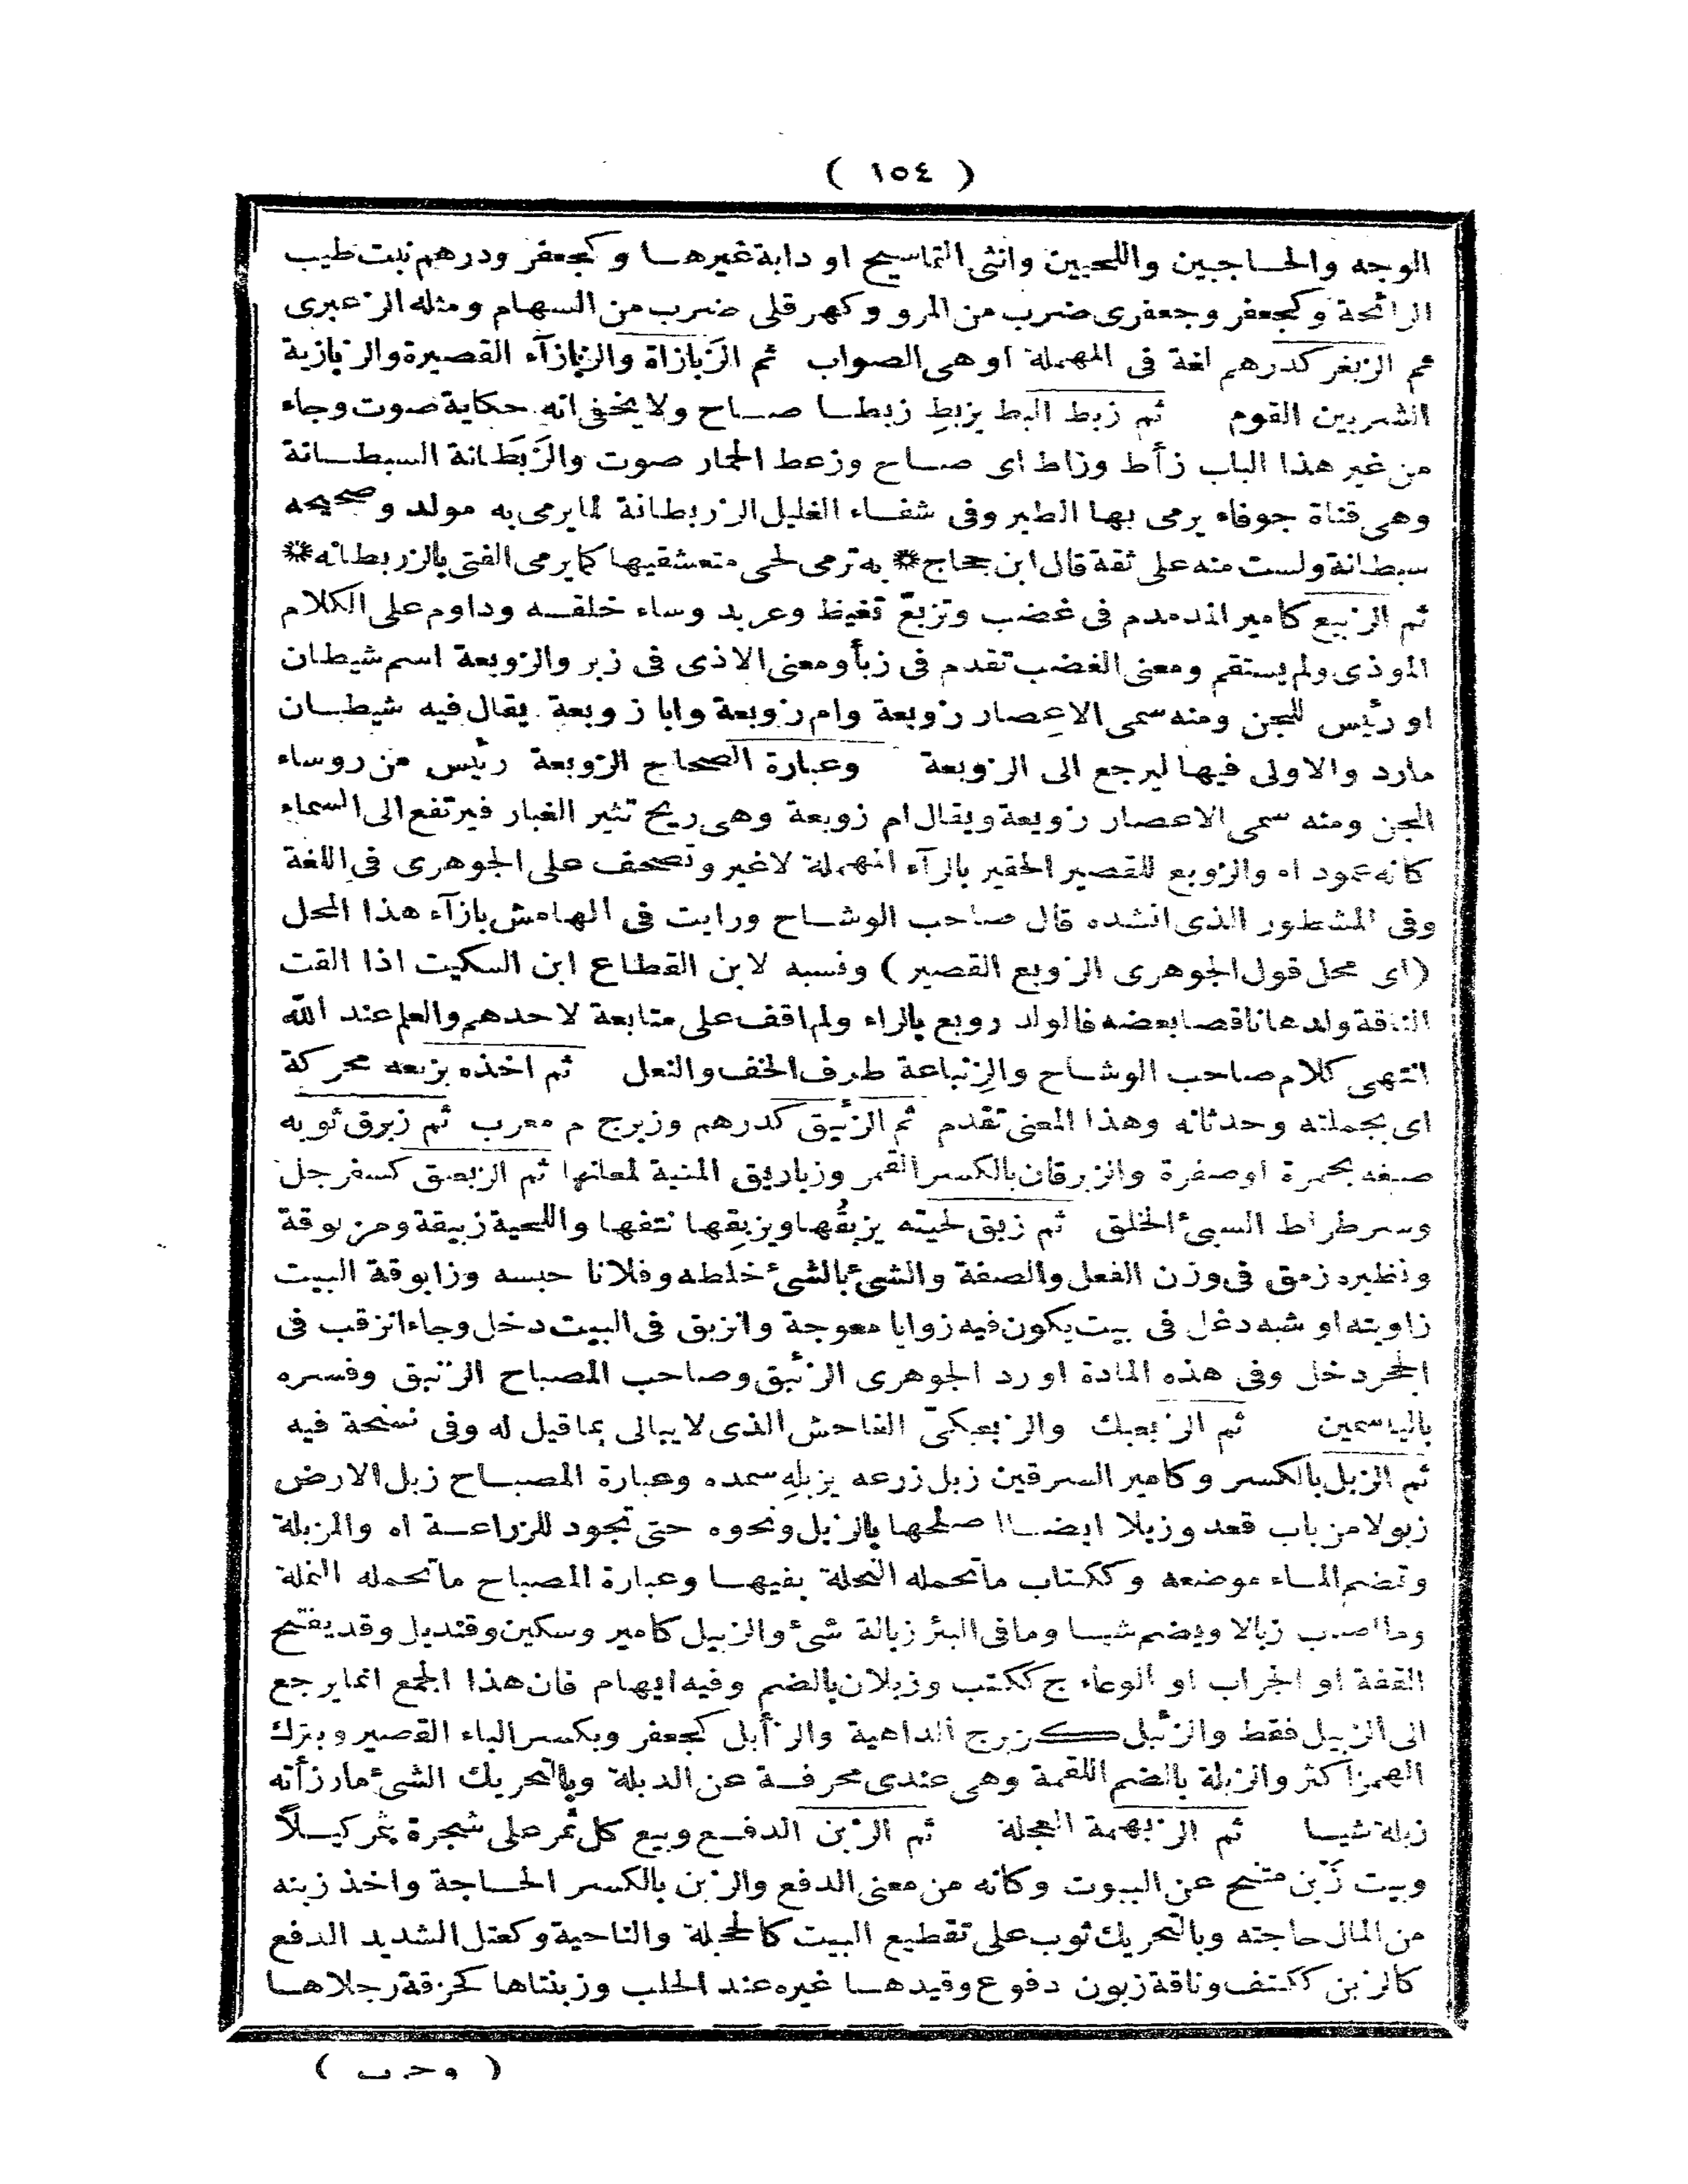 ( ١٥٤ )
الوجه والحاجبين واللحيين وانثى التماسيح او دابة غيرها وكجعفر ودرهم نبت طيب
الرائحة وكجعفر وجعفرى ضرب من المرو وكهرقلى ضرب من السهام ومثله الزعبرى
ثم الزبغر كدرهم لغة فى المهملة او هى الصواب ثم الزَبازاة والزبازآء القصيرة والزبازية
الشر بين القوم ثم زبط البط يزبِط زبطا صاح ولا يخفى انه حكاية صوت وجاء
من غير هذا الباب زأط وزاط اى صاح وزعط الحمار صوت والزَبَطانة السبطانة
وهى قناة جوفاء يرمى بها الطير وفى شفاء الغليل الزربطانة لما يرمى به مولد وصحيحه
سبطانة ولست منه على ثقة قال ابن حجاج * به ترمى لحى متعشقيها كما يرمى الفتى بالزربطانه *
ثم الزبيع كامير المدمدم فى غضب وتزبّع تغيظ وعربد وساء خلقه وداوم على الكلام
الموذى ولم يستقم ومعنى الغضب تقدم فى زبأ ومعنى الاذى فى زبر والزوبعة اسم شيطان
او رئيس للجن ومنه سمى الاعصار زوبعة وام زوبعة وابا زوبعة يقال فيه شيطان
مارد والاولى فيها ليرجع الى الزوبعة وعبارة الصحاح الزوبعة رئيس من روساء
الجن ومنه سمى الاعصار زوبعة ويقال ام زوبعة وهى ريح تثير الغبار فيرتفع الى السماء
كانه عمود اه والزوبع للقصير الحقير بالرآء المهملة لاغير وتصحف على الجوهرى فى اللغة
وفى المشطور الذى انشده قال صاحب الوشاح ورايت فى الهامش بازآء هذا المحل
(اى محل قول الجوهرى الزوبع القصير) ونسبه لابن القطاع ابن السكيت اذا القت
الناقة ولدها ناقصا بعضه فالولد روبع بالراء ولم اقف على متابعة لاحدهم والعلم عند الله
انتهى كلام صاحب الوشاح والزِنباعة طرف الخف والنعل ثم اخذه بزبعه محركة
اى بجملته وحدثانه وهذا المعنى تقدم ثم الزئبق كدرهم وزبرج م معرب ثم زبرق ثوبه
صبغه بحمرة او صفرة والزبرقان بالكسر القمر وزباريق المنية لمعانها ثم الزبعبق كسفرجل
وسرطراط السيئ الخلق ثم زبق لحيته يزبقُها ويزبِقها نتفها واللحية زبيقة ومزبوقة
ونظيره زمق فى وزن الفعل والصفة والشئ بالشئ خلطه وفلانا حبسه وزابوقة البيت
زاويته او شبه دغل فى بيت يكون فيه زوايا معوجة وانزبق فى البيت دخل وجاء انزقب فى
الجحر دخل وفى هذه المادة اورد الجوهرى الزئبق وصاحب المصباح الزنبق وفسره
بالياسمين ثم الزبعبك والزبعبكىّ الفاحش الذى لا يبالى بما قيل له وفى نسخة فيه
ثم الزبل بالكسر وكامير السرقين زبل زرعه يزبِله سمده وعبارة المصباح زبل الارض
زبولا من باب قعد وزبلا ايضا اصلحها بالزبل ونحوه حتى تجود للزراعة اه والمزبلة
وتضم الباء موضعه وككتاب ما تحمله النحلة بفيها وعبارة المصباح ما تحمله النملة
وما اصاب زبالا ويضم شيا وما فى البئر زبالة شئ والزبيل كامير وسكين وقنديل وقد يفتح
القفة او الجراب او الوعاء ج ككتب وزبلان بالضم وفيه ايهام فان هذا الجمع انما يرجع
الى الزبيل فقط والزئبل كزبرج الداهية والزأبل كجعفر وبكسر الباء القصير وبترك
الهمزا كثر والزبلة بالضم اللقمة وهى عندى محرفة عن الدبلة وبالتحريك الشئ ما رزأته
زبلة شيا ثم الزبهمة العجلة ثم الزبن الدفع وبيع كل ثمر على شجرة بثمر كيلاً
وبيت زَبْن متنح عن البيوت وكانه من معنى الدفع والزبن بالكسر الحاجة واخذ زبنه
من المال حاجته وبالتحريك ثوب على تقطيع البيت كالحجلة والناحية وكعتل الشديد الدفع
كالزبن ككتف وناقة زبون دفوع وقيدها غيره عند الحلب وزبنتاها كحزقة رجلاها
( وحرب )